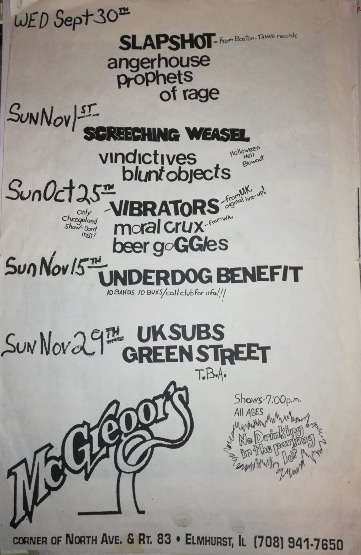 WED Sept 30TH
SLAPSHOT - from Boston - TAANG records
angerhouse
prophets
of rage
Sun Nov 1ST.
SCREECHING WEASEL
vindictives
blunt objects
Halloween
Hell
Blowout
Sun Oct 25TH
VIBRATORS - from UK,
original line-up!
Only
Chicagoland
Show - Dont
Miss!
moral crux - from WA.
beer goGGles
Sun Nov 15TH
UNDERDOG BENEFIT
10 BANDS 10 BUKS/call club for info!!!
Sun Nov 29TH
UK SUBS
GREEN STREET
T.B.A.
McGregor's
Shows - 7:00 p.m.
All AGES
No Drinking
in the parking
lot
CORNER OF NORTH AVE. & RT. 83 • ELMHURST, IL (708) 941-7650